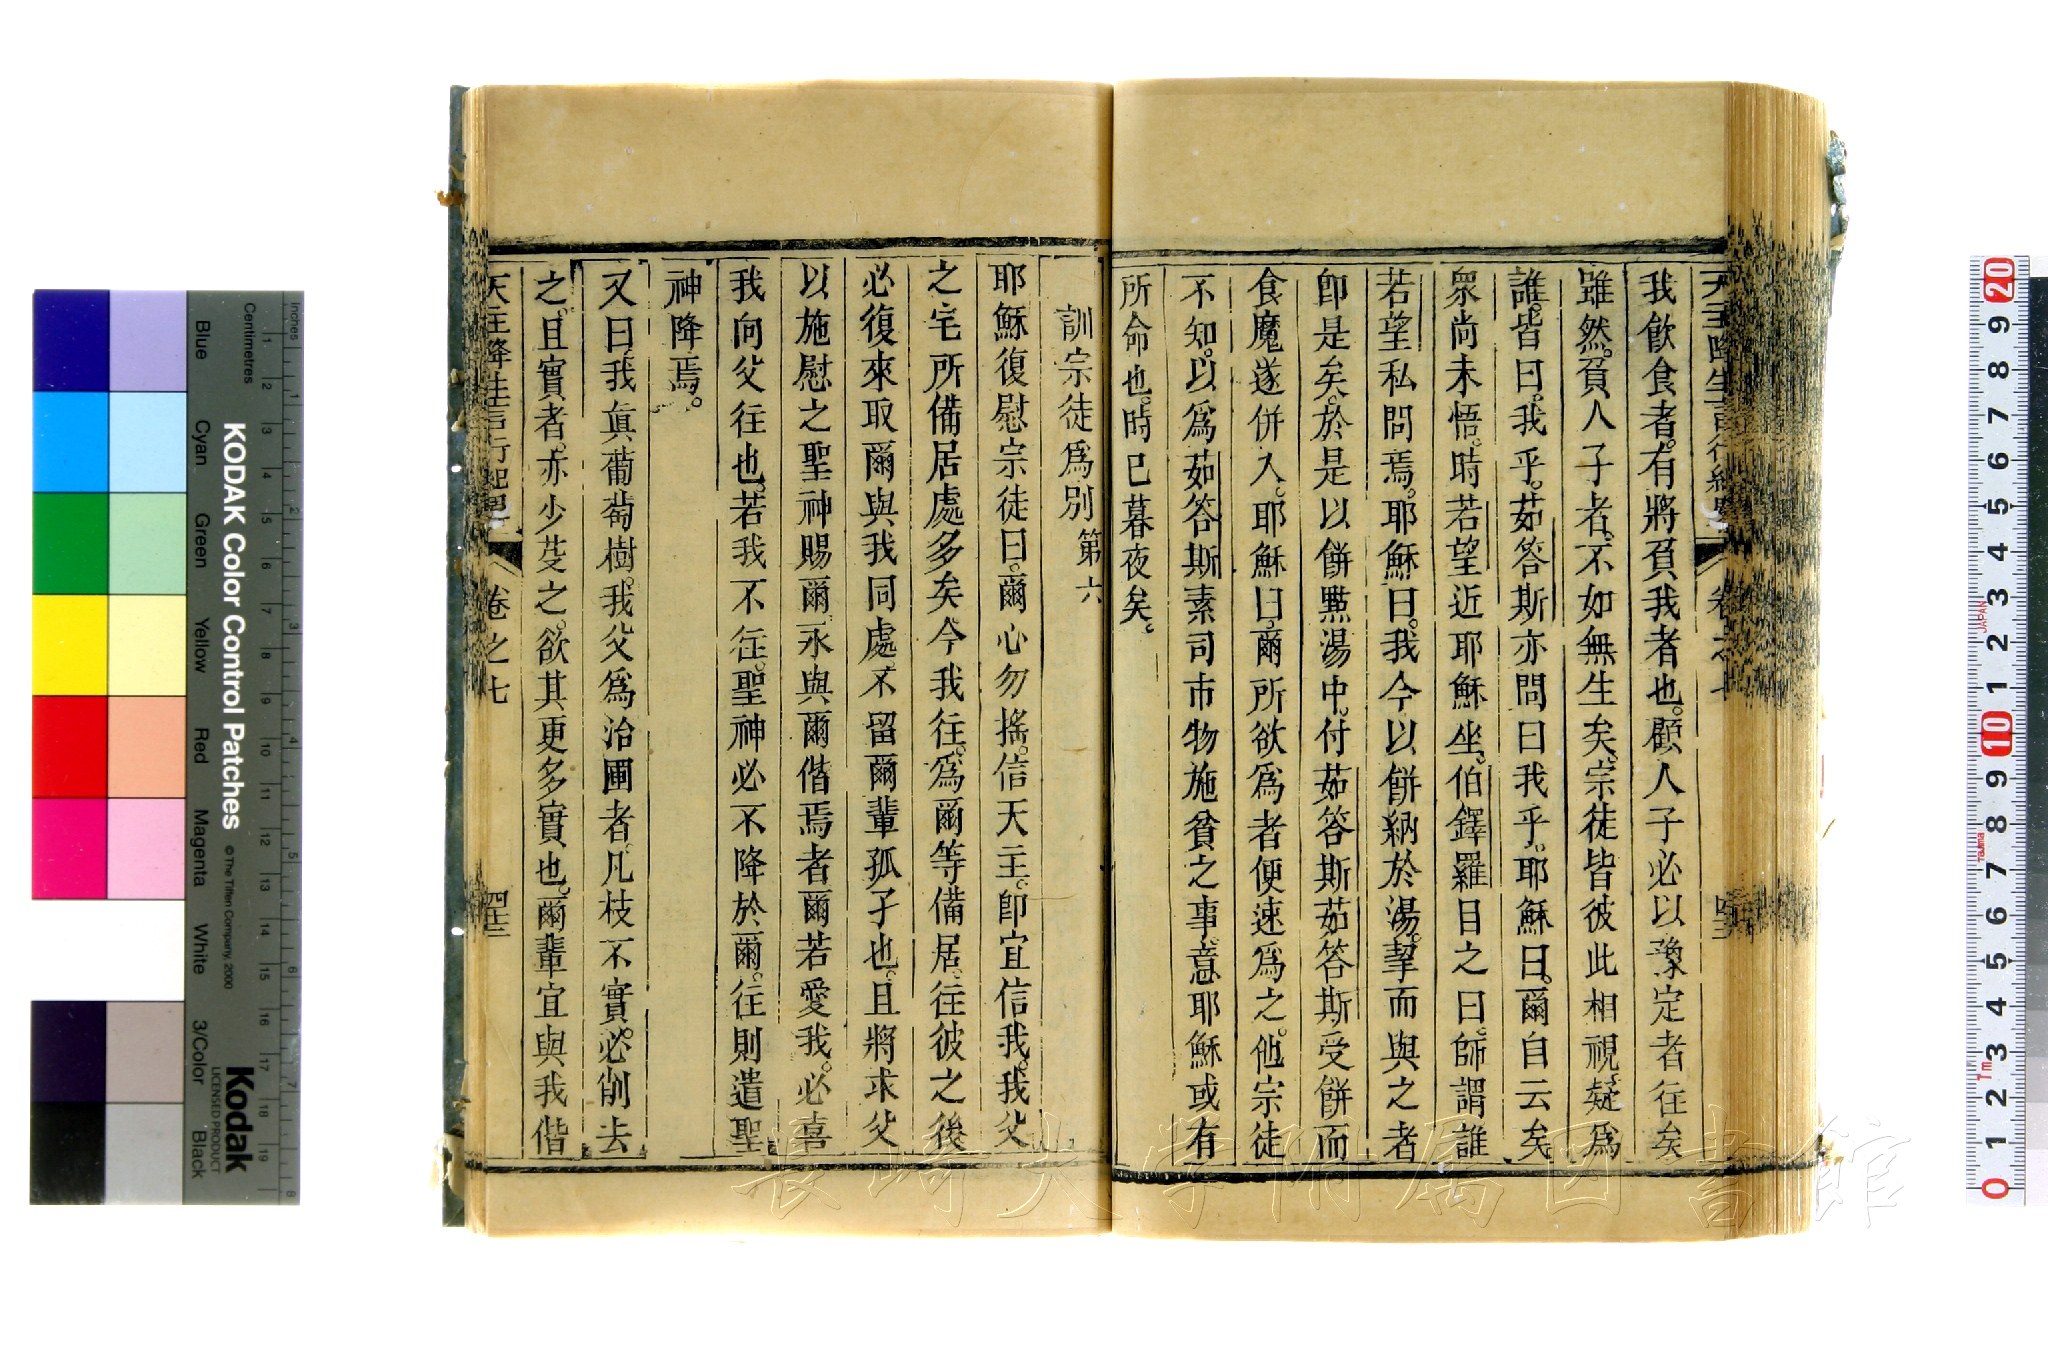 天主降生言行紀畧
卷之七
我飲食者。有將負我者也。顧人子必以豫定者往矣
雖然。負人子者。不如無生矣。宗徒皆彼此相視。疑爲
誰。皆曰。我乎。茹答斯亦問曰我乎。耶穌曰。爾自云矣
衆尚未悟。時若望近耶穌坐。伯鐸羅目之曰。師謂誰
若望私問焉。耶穌曰。我今以餅納於湯。挈而與之者
卽是矣。於是以餅㸃湯中。付茹答斯茹答斯受餅而
食魔遂併入。耶穌曰。爾所欲爲者便速爲之。他宗徒
不知。以爲茹答斯素司市物施貧之事。意耶穌或有
所命也。時已暮夜矣。
訓宗徒爲別 第六
耶穌復慰宗徒曰。爾心勿搖。信天主。卽宜信我。我父
之宅所備居處多矣今我往。爲爾等備居。往彼之後
必復來取爾與我同處不留爾輩孤子也。且將求父
以施慰之聖神賜爾。永與爾偕焉者爾若愛我。必喜
我向父往也。若我不往。聖神必不降於爾。往則遣聖
神降焉。
又曰我眞葡萄樹。我父爲治圃者。凡枝不實。必削去
之。且實者。亦少芟之。欲其更多實也。爾輩宜與我偕
天主降生言行紀畧
卷之七
四三
KODAK Color Control Patches
© The Tiffen Company, 2000
Kodak
LICENSED PRODUCT
Inches
Centimetres
Blue
Cyan
Green
Yellow
Red
Magenta
White
3/Color
Black
JAPAN
Tajima
長崎大学附属図書館